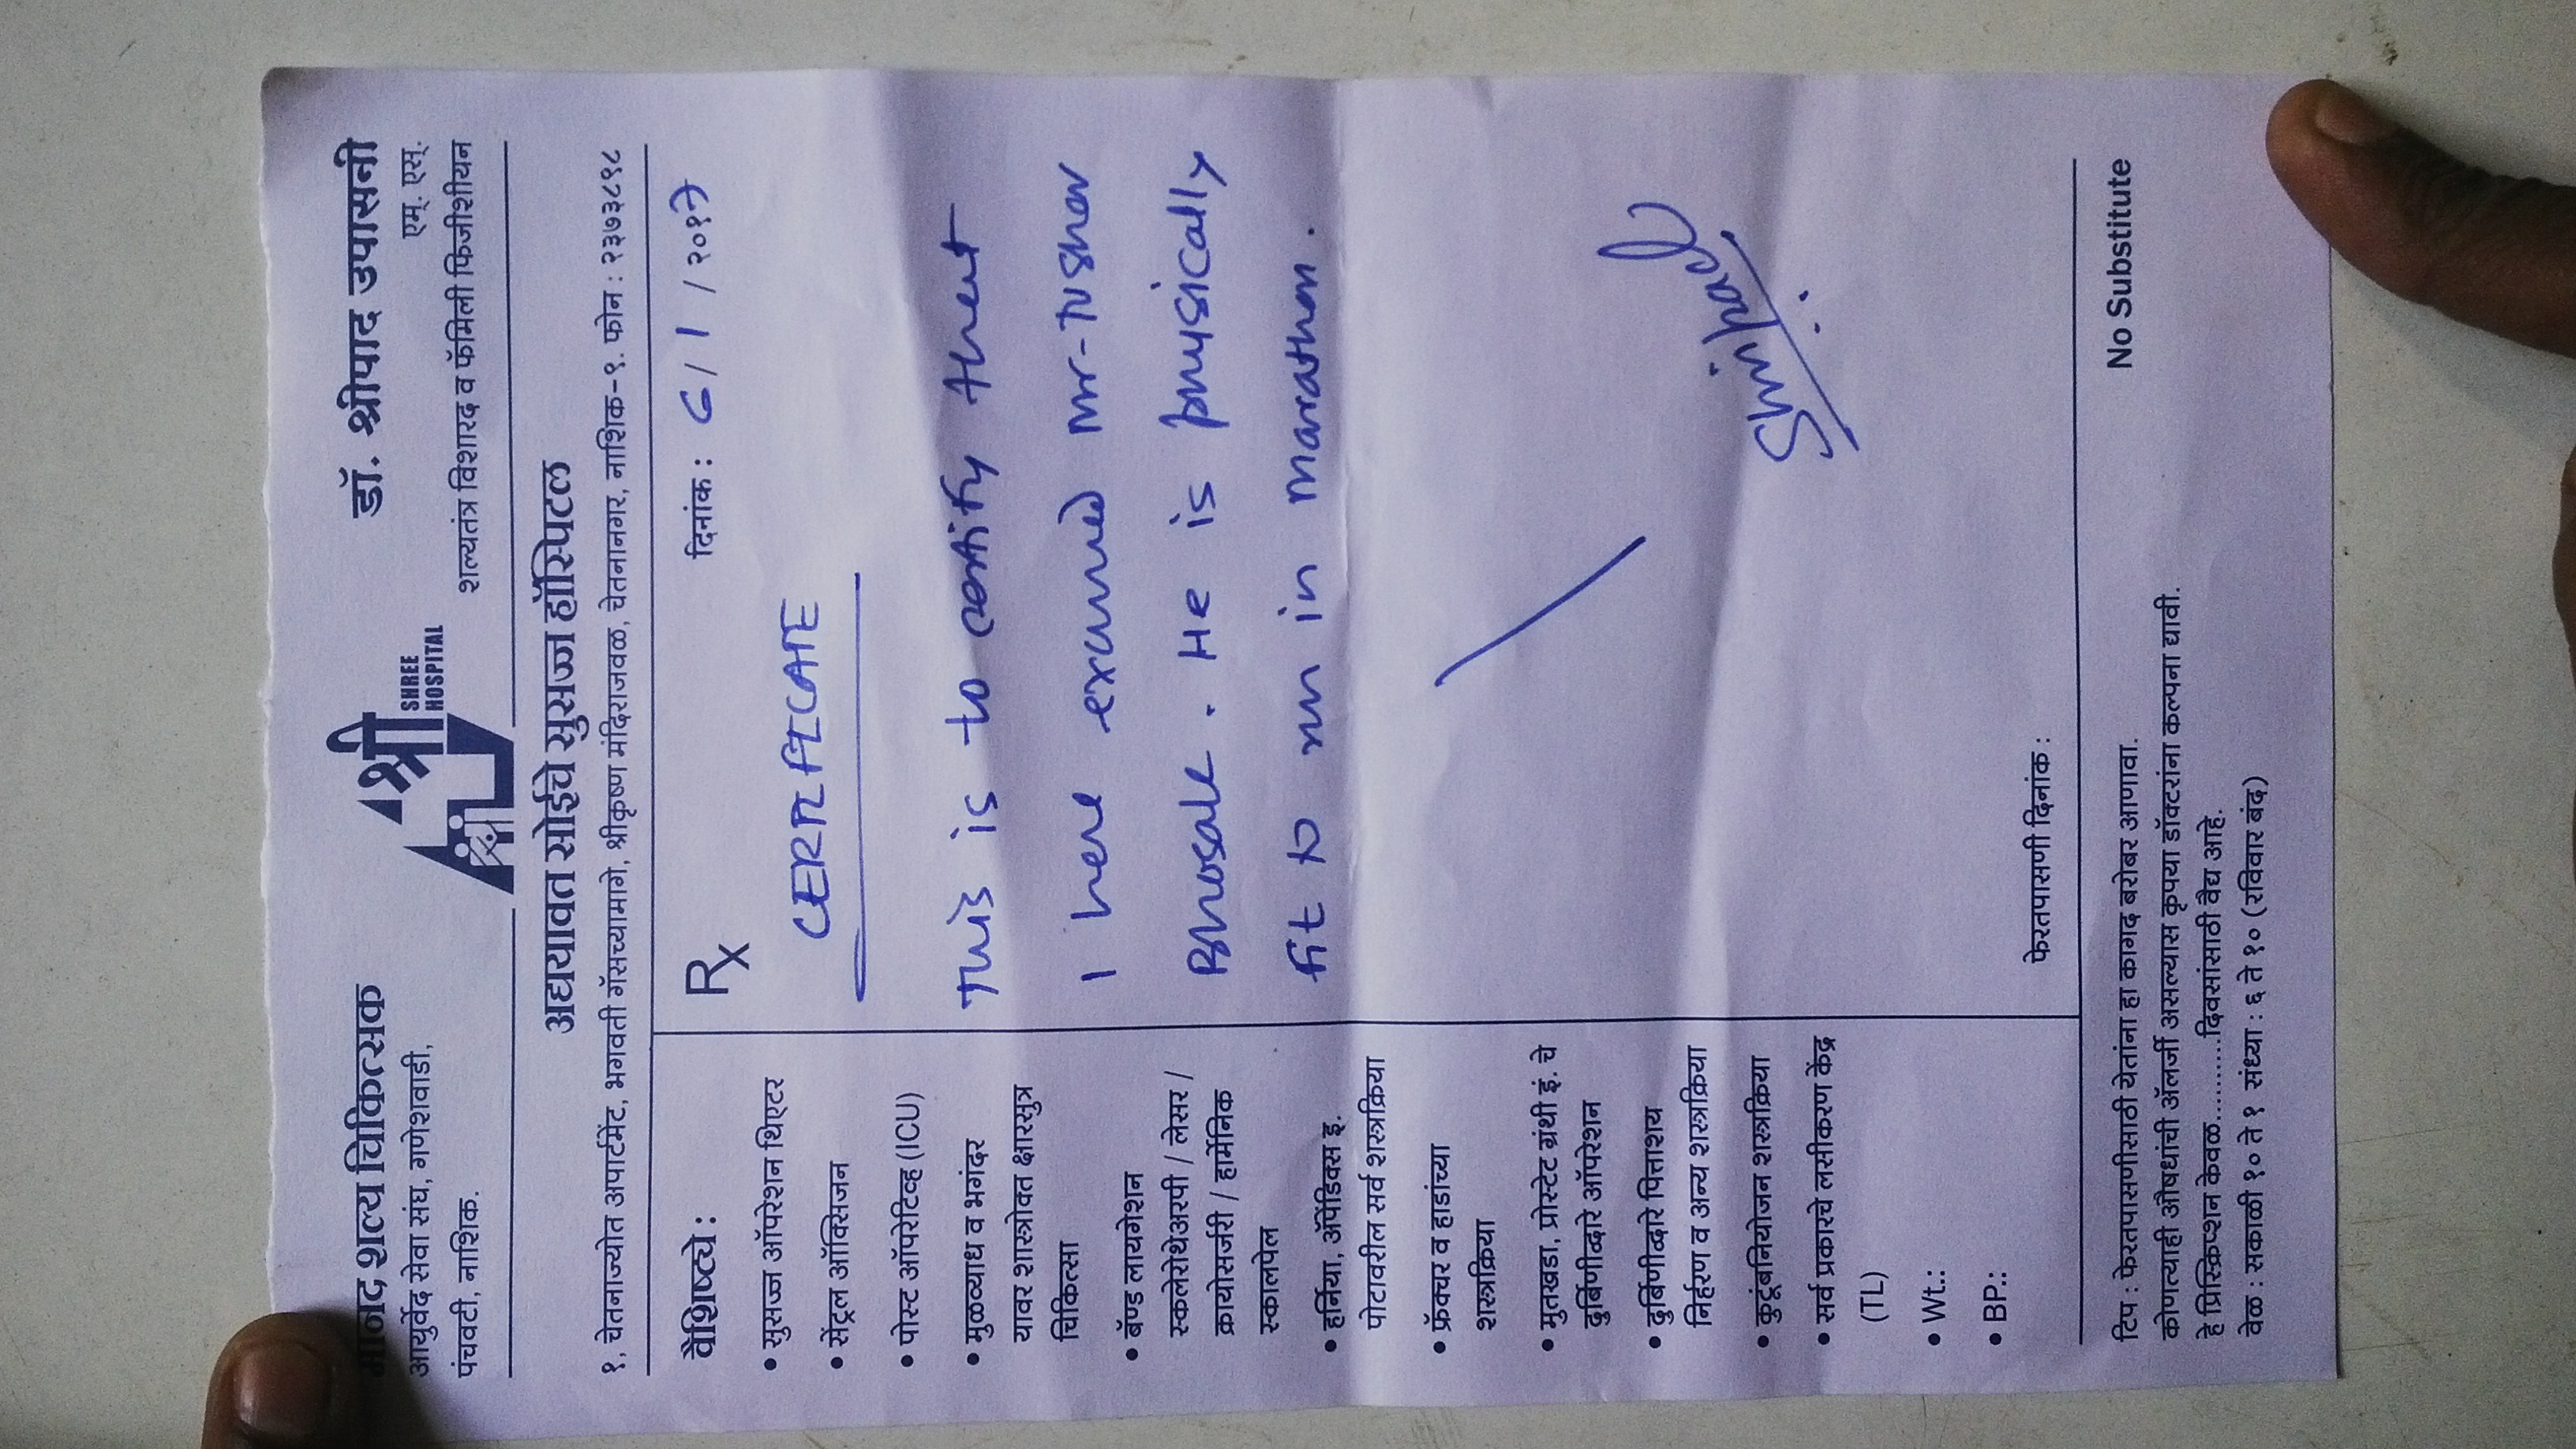 मानद शल्य चिकित्सक
आयुर्वेद सेवा संघ, गणेशवाडी,
पंचवटी, नाशिक.
श्री
SHREE
HOSPITAL
डॉ. श्रीपाद उपासनी
एम्. एस्.
शल्यतंत्र विशारद व फॅमिली फिजीशीयन
अद्ययावत सोईचे सुसज्ज हॉस्पिटल
१, चेतनाज्योत अपार्टमेंट, भगवती गॅसच्यामागे, श्रीकृष्ण मंदिराजवळ, चेतनानगर, नाशिक-९. फोन : २३७३८९८
वैशिष्ट्ये :
• सुसज्ज ऑपरेशन थिएटर
• सेंट्रल ऑक्सिजन
• पोस्ट ऑपरेटिव्ह (ICU)
• मुळव्याध व भगंदर
यावर शास्त्रोक्त क्षारसुत्र
चिकित्सा
• बॅण्ड लायगेशन
स्क्लेरोथेअरपी / लेसर /
क्रायोसर्जरी / हार्मेनिक
स्कालपेल
• हर्निया, अ‍ॅपेंडिक्स इ.
पोटावरील सर्व शस्त्रक्रिया
• फ्रॅक्चर व हाडांच्या
शस्त्रक्रिया
• मुतखडा, प्रोस्टेट ग्रंथी इं. चे
दुर्बिणीव्दारे ऑपरेशन
• दुर्बिणीव्दारे पित्ताशय
निर्हरण व अन्य शस्त्रक्रिया
• कुटूंबनियोजन शस्त्रक्रिया
• सर्व प्रकारचे लसीकरण केंद्र
(TL)
• Wt.:
• BP.:
Rx
दिनांक : 6 / 1 / २०१७
CERTIFICATE
This is to certify that
I have examined Mr. Tushar
Bhosale. He is physically
fit to run in marathon.
फेरतपासणी दिनांक :
टिप : फेरतपासणीसाठी येतांना हा कागद बरोबर आणावा.
कोणत्याही औषधांची अ‍ॅलर्जी असल्यास कृपया डॉक्टरांना कल्पना द्यावी.
हे प्रिस्क्रिप्शन केवळ...........दिवसांसाठी वैद्य आहे.
वेळ : सकाळी १० ते १ संध्या : ६ ते १० (रविवार बंद)
No Substitute